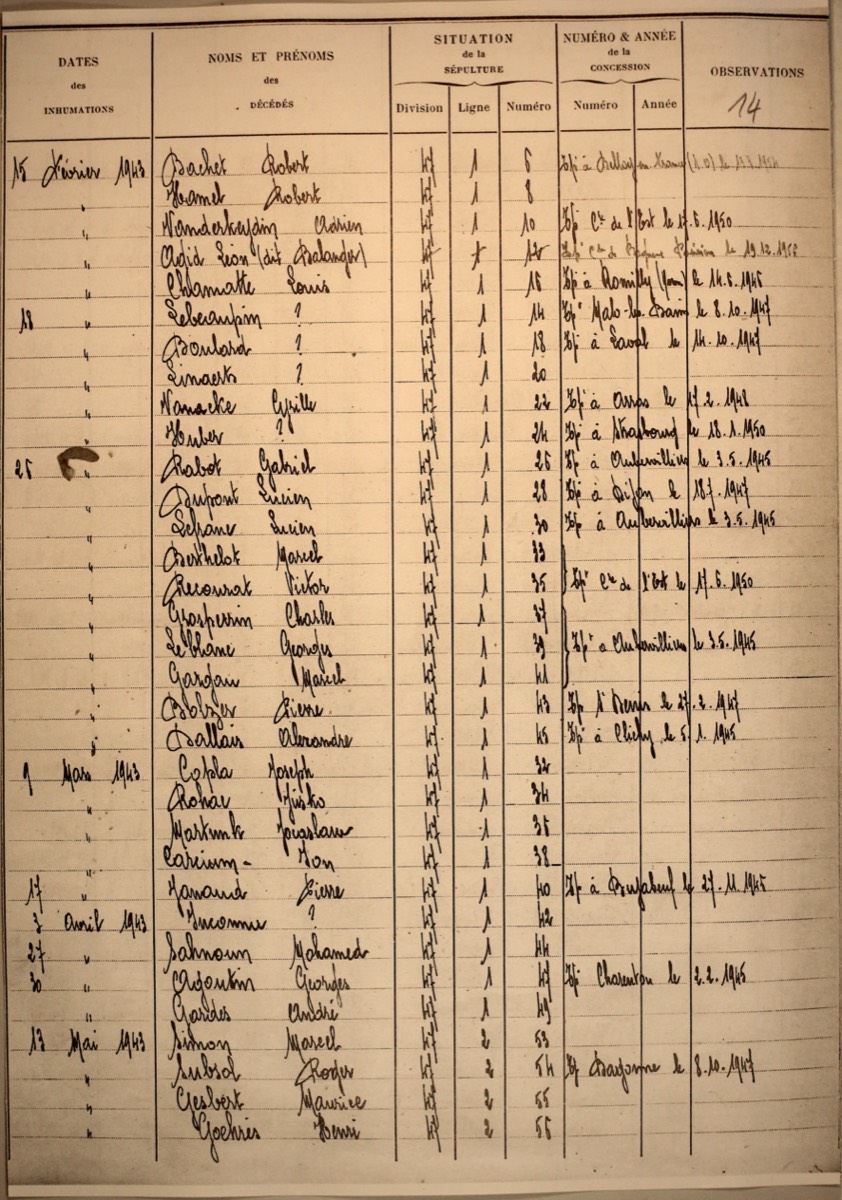 DATES
des
INHUMATIONS
NOMS ET PRÉNOMS
des
DÉCÉDÉS
SITUATION
de la
SÉPULTURE
Division Ligne Numéro
NUMÉRO & ANNÉE
de la
CONCESSION
Numéro Année
OBSERVATIONS
14
15 Février 1943 Bachet Robert 47 1 6
" Hamel Robert 47 1 8
" Vanderheydin Adrien 47 1 10 Tp Cre de l'Est le 17.6.1950
" Agid Léon (dit Balanger) 47 1 12 le 19.12.1956
" Chlamatte Louis 47 1 16 Tp à Romilly le 14.6.1946
18 " Lebeaupin ? 47 1 14 Tpt Malo-les-Bains le 8.10.1947
" Boulard ? 47 1 18 Tp à Laval le 14.10.1947
" Linaerts ? 47 1 20
" Vanacke Cyrille 47 1 22 Tpt à Arras le 17.2.1948
" Huber ? 47 1 24 Tp à Strasbourg le 18.1.1950
26 " Rabot Gabriel 47 1 26 Tp à Aubervilliers le 3.5.1945
" Dupont Lucien 47 1 28 Tp à Dijon le 18.7.1947
" Lefranc Lucien 47 1 30 Tp à Aubervilliers le 3.5.1945
" Berthelot Marcel 47 1 33
" Recourat Victor 47 1 35 Tpt Cre de l'Est le 17.6.1950
" Grosperrin Charles 47 1 37
" Leblanc Georges 47 1 39 Tpt à Aubervilliers le 3.5.1945
" Gardan Marcel 47 1 41
" Bolzer Pierre 47 1 43 Tp St Denis le 27.2.1947
" Ballais Alexandre 47 1 45 Tpt à Clichy le 5.1.1945
9 Mars 1943 Copla Joseph 47 1 32
" Rohac 47 1 34
" Martunk 47 1 36
" Carcium - Ion 47 1 38
17 " Janaud Pierre 47 1 40 Tp à le 27.11.1945
3 Avril 1943 Inconnu ? 47 1 42
27 " Sahnoun Mohamed 47 1 44
30 " Agoutin Georges 47 1 47 Tp Charenton le 2.2.1945
" Gardes André 47 1 49
13 Mai 1943 Simon Marcel 47 2 53
" Subsol Roger 47 2 54 Tp Bayonne le 8.10.1947
" Gesbert Maurice 47 2 55
" Goehres Henri 47 2 56